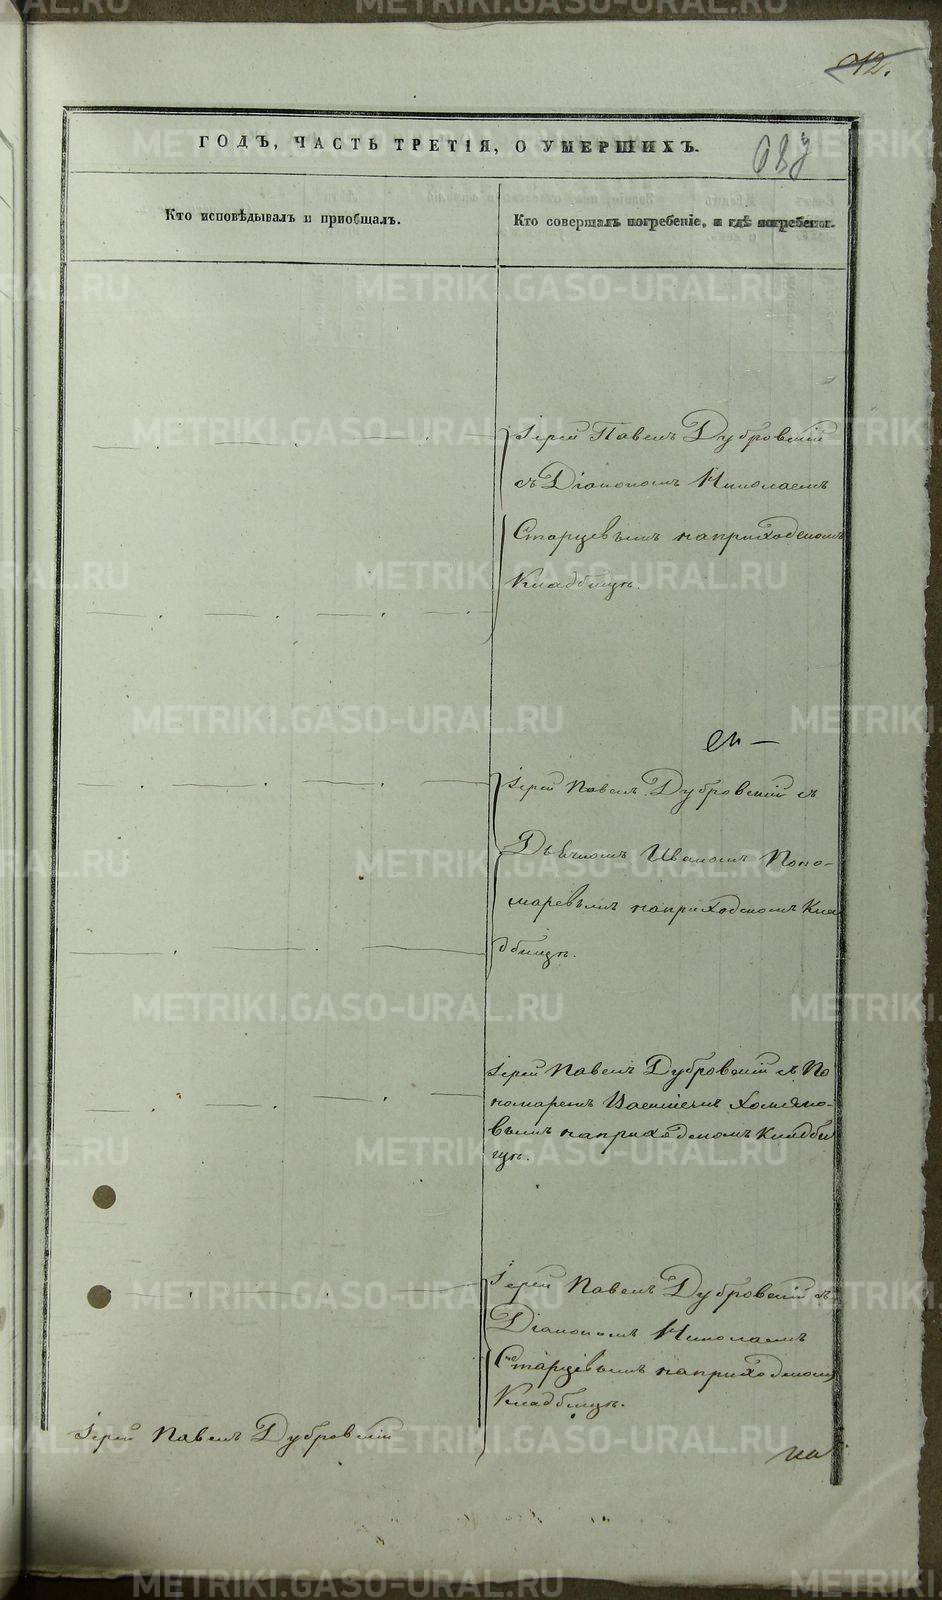 42.
ГОДЪ, ЧАСТЬ ТРЕТІЯ, О УМЕРШИХЪ.
Кто исповѣдывалъ и пріобщалъ.
Кто совершалъ погребеніе, и гдѣ погребены.
Іерей Павелъ Дубровскій
съ Діакономъ Николаемъ
Старцевымъ наприходскомъ
Кладбищѣ.
Іерей Павелъ Дубровскій съ
Дьячкомъ Иваномъ Поно-
маревымъ наприходскомъ Кла
дбищѣ.
Іерей Павелъ Дубровскій съ По
номаремъ Хомяко-
вымъ наприходскомъ Кладби
щѣ.
Іерей Павелъ Дубровскій съ
Діакономъ Николаемъ
Старцевымъ наприходскомъ
Кладбищѣ.
Іерей Павелъ Дубровскій
METRIKI.GASO-URAL.RU